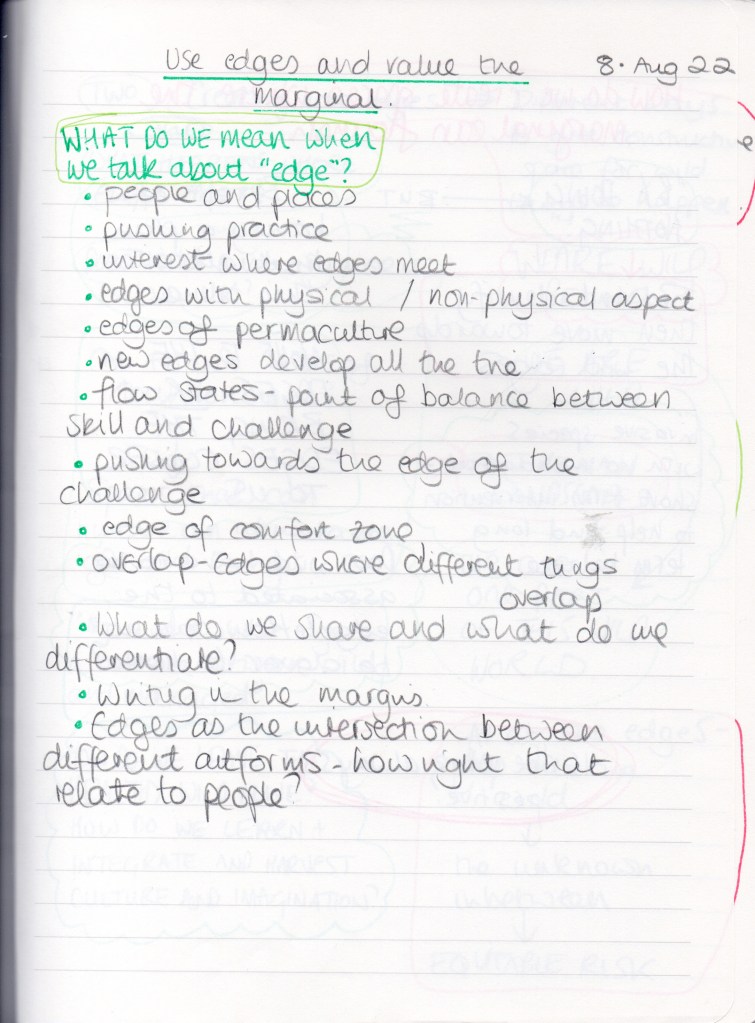 Use edges and value the
8. Aug 22
marginal.
WHAT DO WE mean when
we talk about "edge"?
• people and places
• pushing practice
• interest where edges meet
• edges with physical / non-physical aspect
• edges of permaculture
• new edges develop all the time
• flow states - point of balance between
skill and challenge
• pushing towards the edge of the
challenge
• edge of comfort zone
• overlap - Edges where different things
overlap
• What do we share and what do we
differentiate?
• Writing in the margins.
• Edges as the intersection between
different artforms - how might that
relate to people?